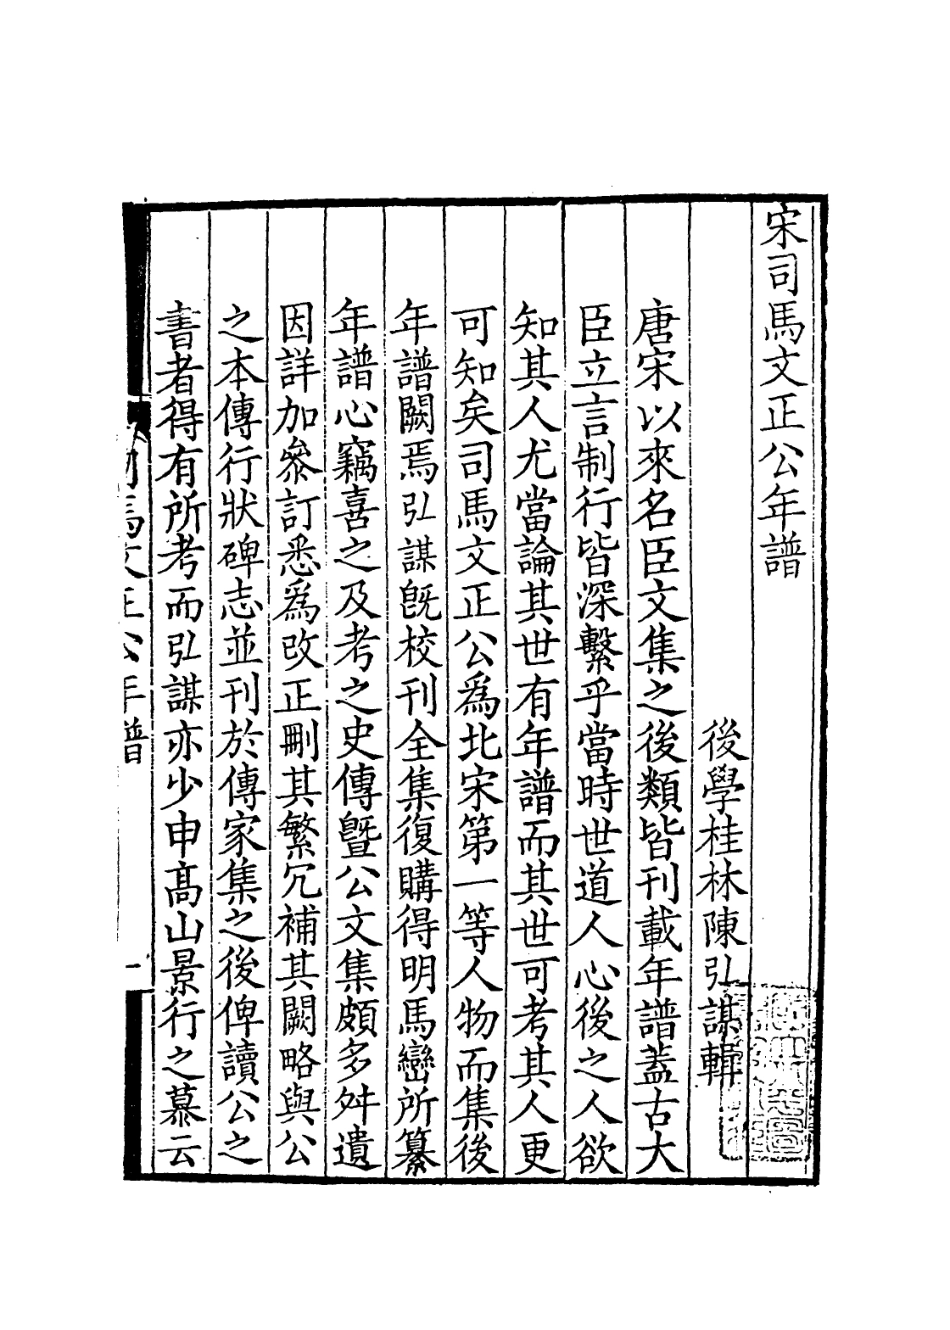 宋司馬文正公年譜
後學桂林陳弘謀輯
唐宋以來名臣文集之後類皆刊載年譜蓋古大
臣立言制行皆深繫乎當時世道人心後之人欲
知其人尤當論其世有年譜而其世可考其人更
可知矣司馬文正公爲北宋第一等人物而集後
年譜闕焉弘謀旣校刊全集復購得明馬巒所纂
年譜心竊喜之及考之史傳曁公文集頗多舛遺
因詳加叅訂悉爲改正刪其繁冗補其闕略與公
之本傳行狀碑志並刊於傳家集之後俾讀公之
書者得有所考而弘謀亦少申高山景行之慕云
司馬文正公年譜
一